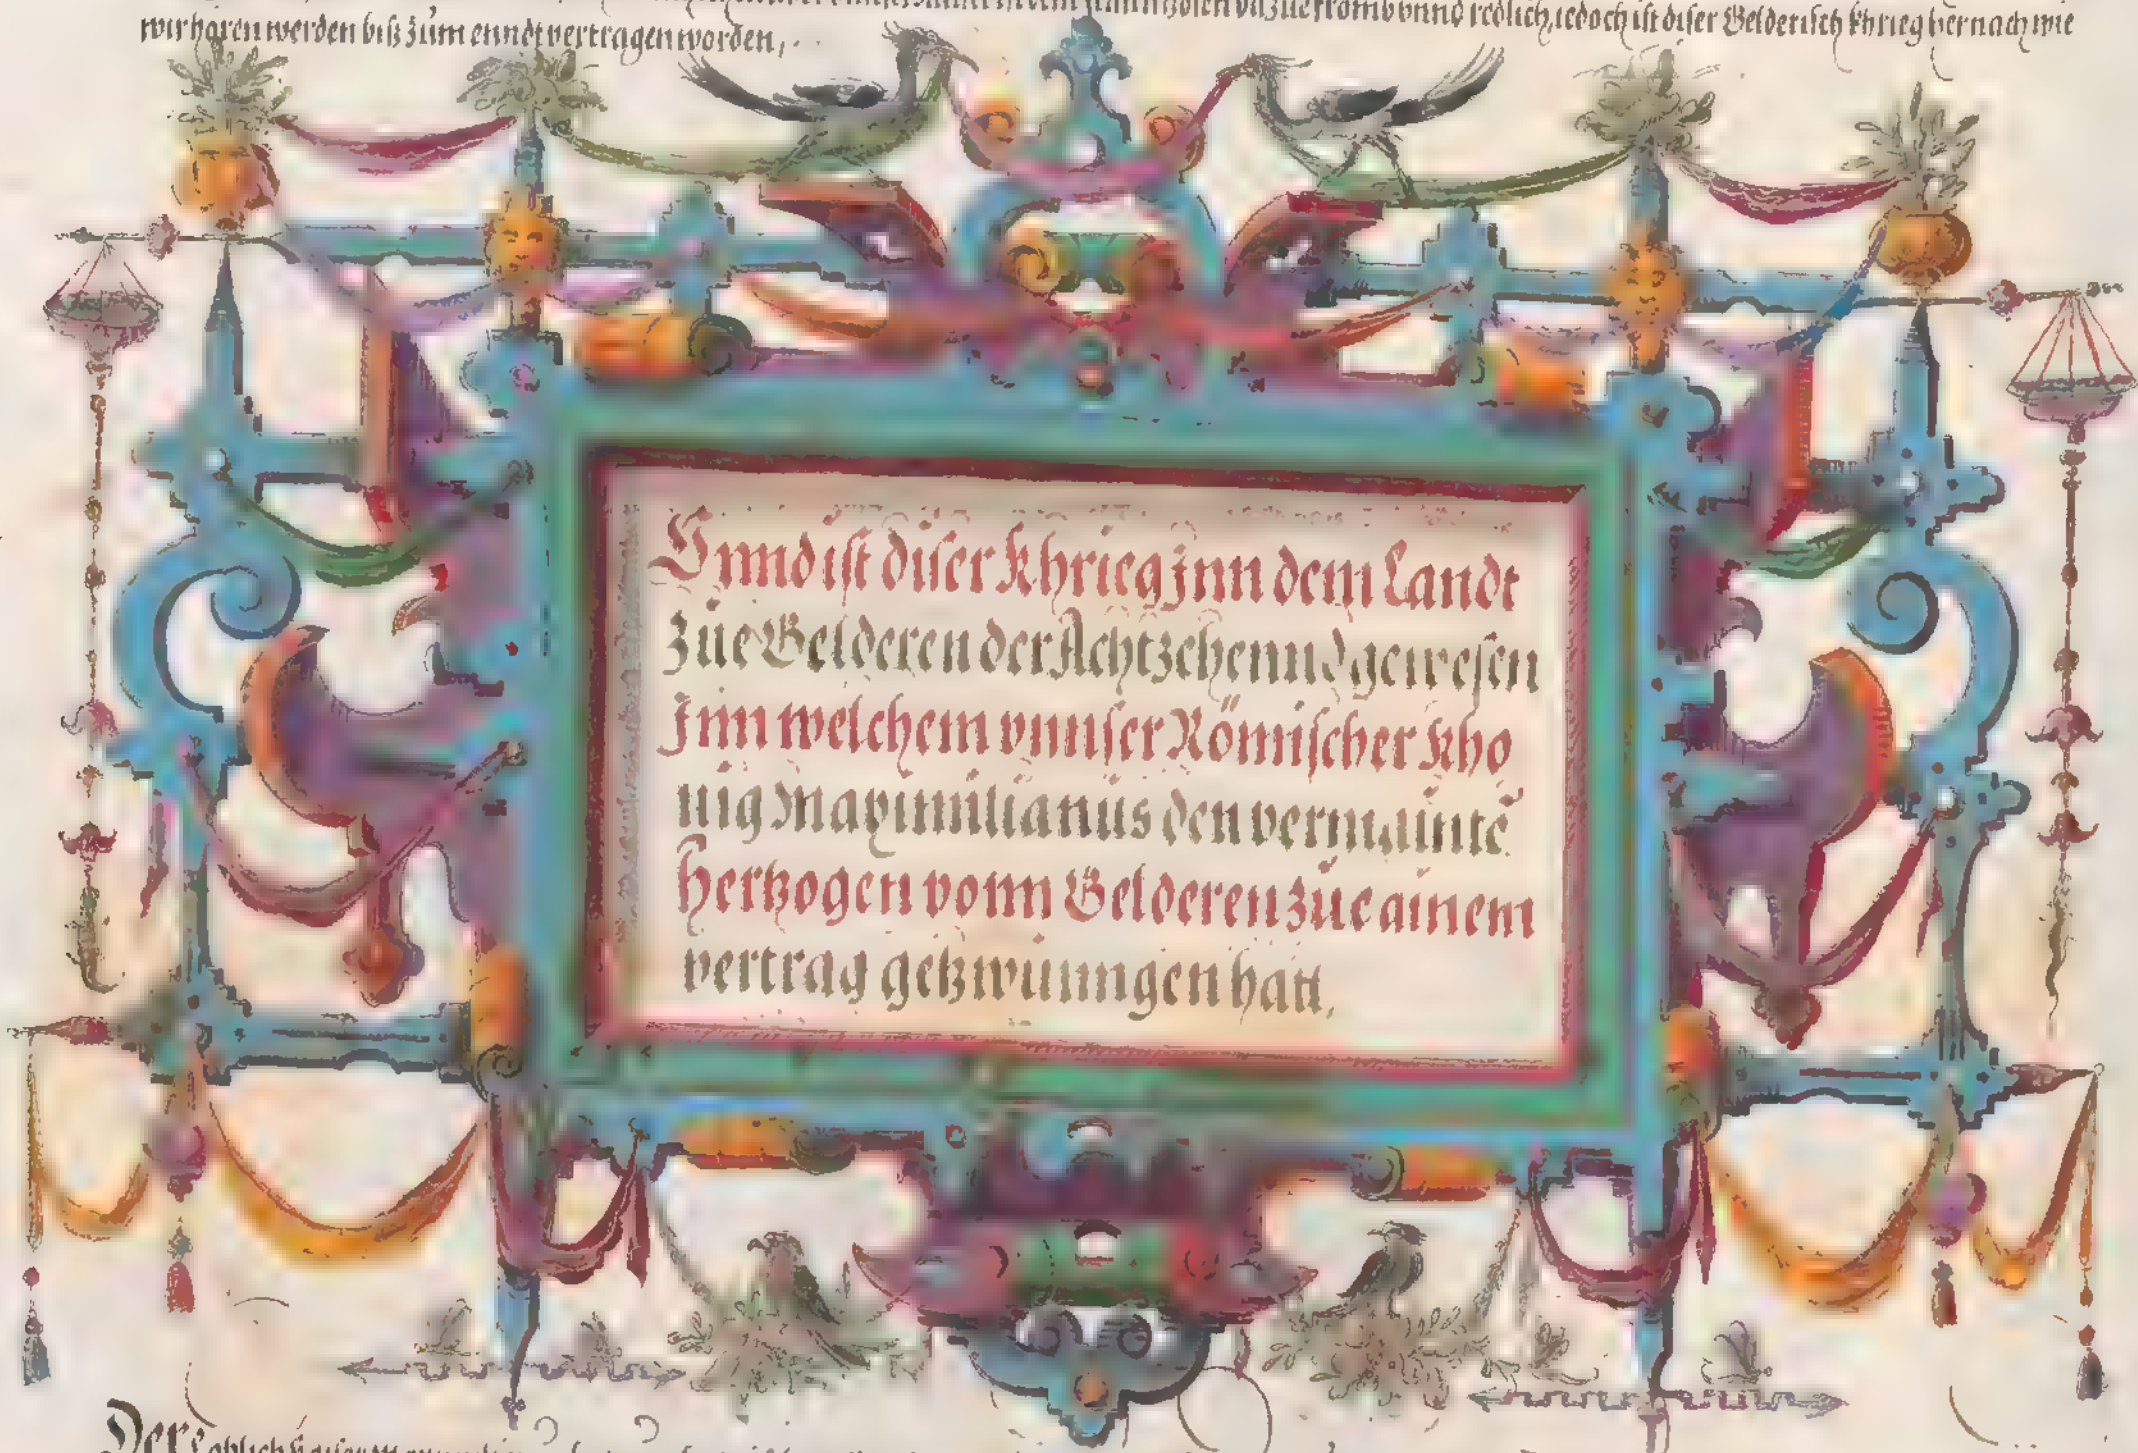 dem frannzosen vil zue fromb vnnd redlich, iedoch ist diser Gelderisch khrieg hernach wie
wir hören werden biß zum enndt vertragen worden,
Vnnd ist diser Khrieg jnn dem Landt
zue Gelderen der Achtzehennd gewesen
Jnn welchem vnnser Römischer Kho
nig Maximilianus den vermainte
hertzogen vonn Gelderen zue ainem
vertrag getzwunngen hatt,
Der Loblich